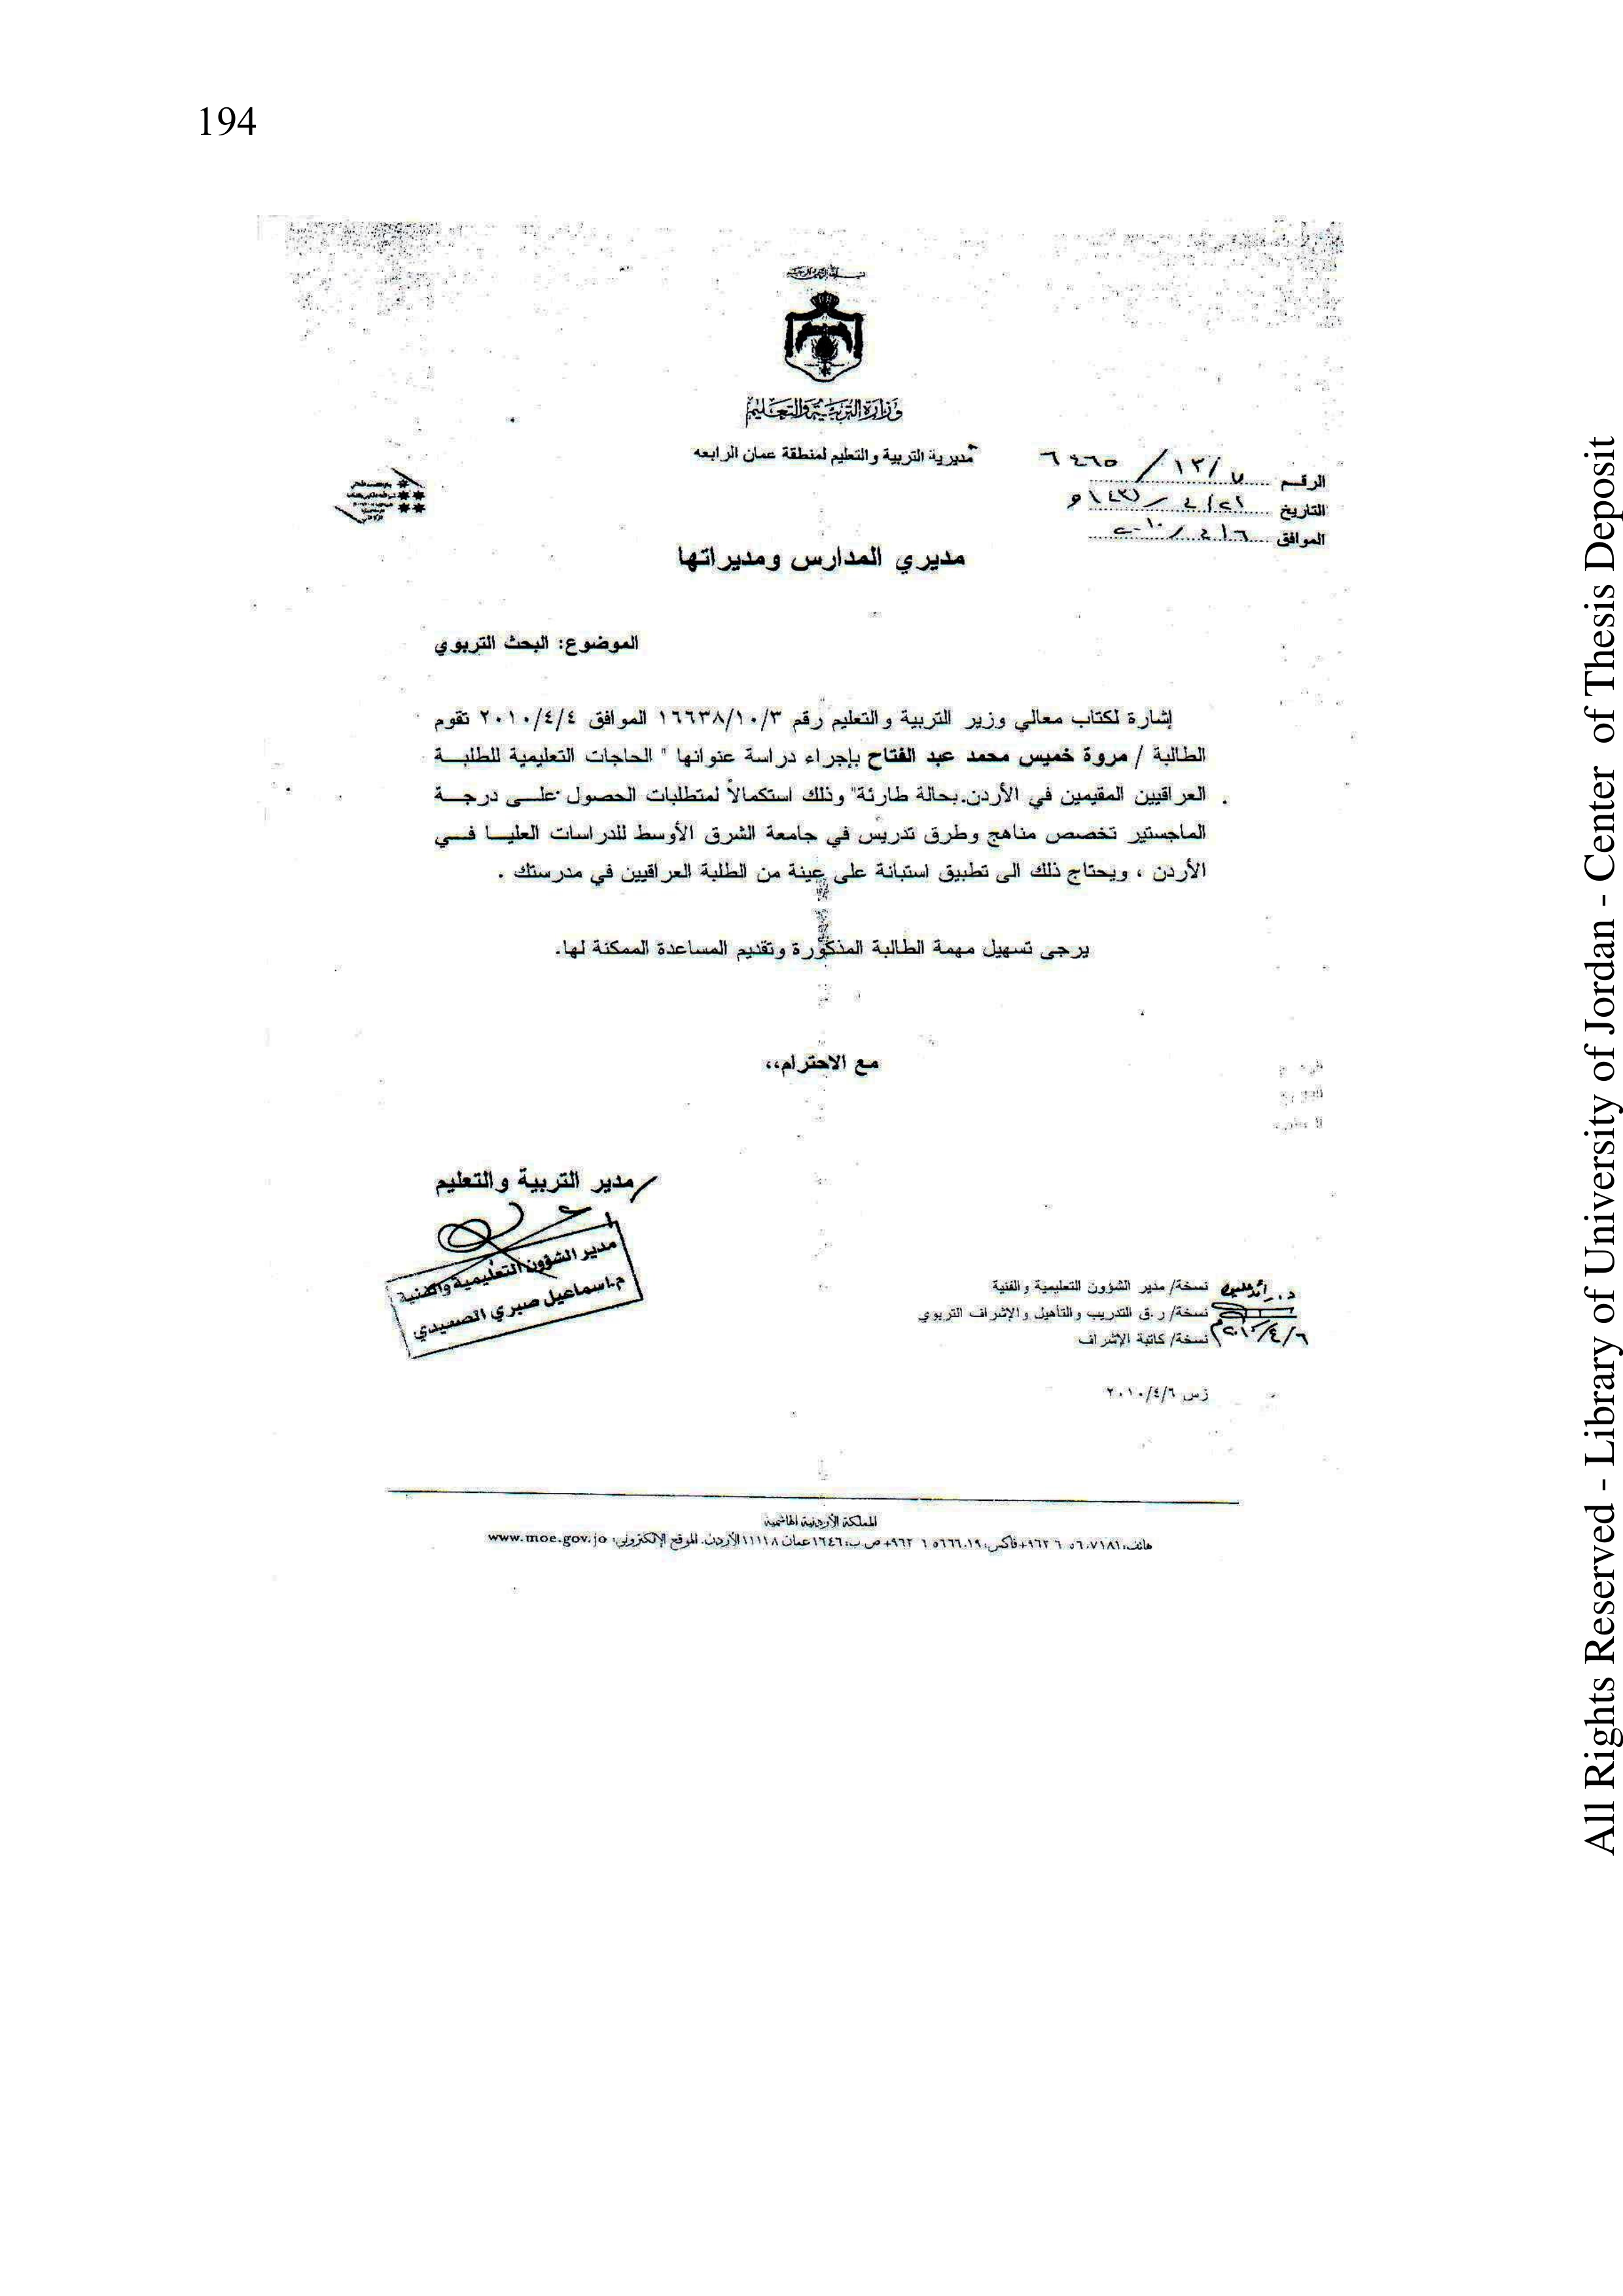 194
وزارة التربية والتعليم
مديرية التربية والتعليم لمنطقة عمان الرابعه
الرقم ٧/١٣/٦٤٦٥
التاريخ ٢١/٤/١٤٣١ه
الموافق ٦/٤/٢٠١٠
مديري المدارس ومديراتها
الموضوع: البحث التربوي
إشارة لكتاب معالي وزير التربية والتعليم رقم ١٦٦٣٨/١٠/٣ الموافق ٢٠١٠/٤/٤ تقوم
الطالبة / مروة خميس محمد عبد الفتاح بإجراء دراسة عنوانها " الحاجات التعليمية للطلبـــة
العراقيين المقيمين في الأردن بحالة طارئة" وذلك استكمالاً لمتطلبات الحصول علـــى درجـــة
الماجستير تخصص مناهج وطرق تدريس في جامعة الشرق الأوسط للدراسات العليـــا فـــي
الأردن ، ويحتاج ذلك الى تطبيق استبانة على عينة من الطلبة العراقيين في مدرستك .
يرجى تسهيل مهمة الطالبة المذكورة وتقديم المساعدة الممكنة لها.
مع الاحترام،،
مدير التربية والتعليم
مدير الشؤون التعليمية والفنية
م.اسماعيل صبري الصعيدي
نسخة/ مدير الشؤون التعليمية والفنية
نسخة/ ر.ق التدريب والتأهيل والإشراف التربوي
نسخة/ كاتبة الإشراف
٢٠١٠/٤/٦
زس ٢٠١٠/٤/٦
المملكة الأردنية الهاشمية
هاتف: ٥٦٠٧١٨١ ٦ ٩٦٢+ فاكس: ٥٦٦٦٠١٩ ٦ ٩٦٢+ ص.ب: ١٦٤٦ عمان ١١١١٨ الأردن. الموقع الإلكتروني: www.moe.gov.jo
All Rights Reserved - Library of University of Jordan - Center of Thesis Deposit